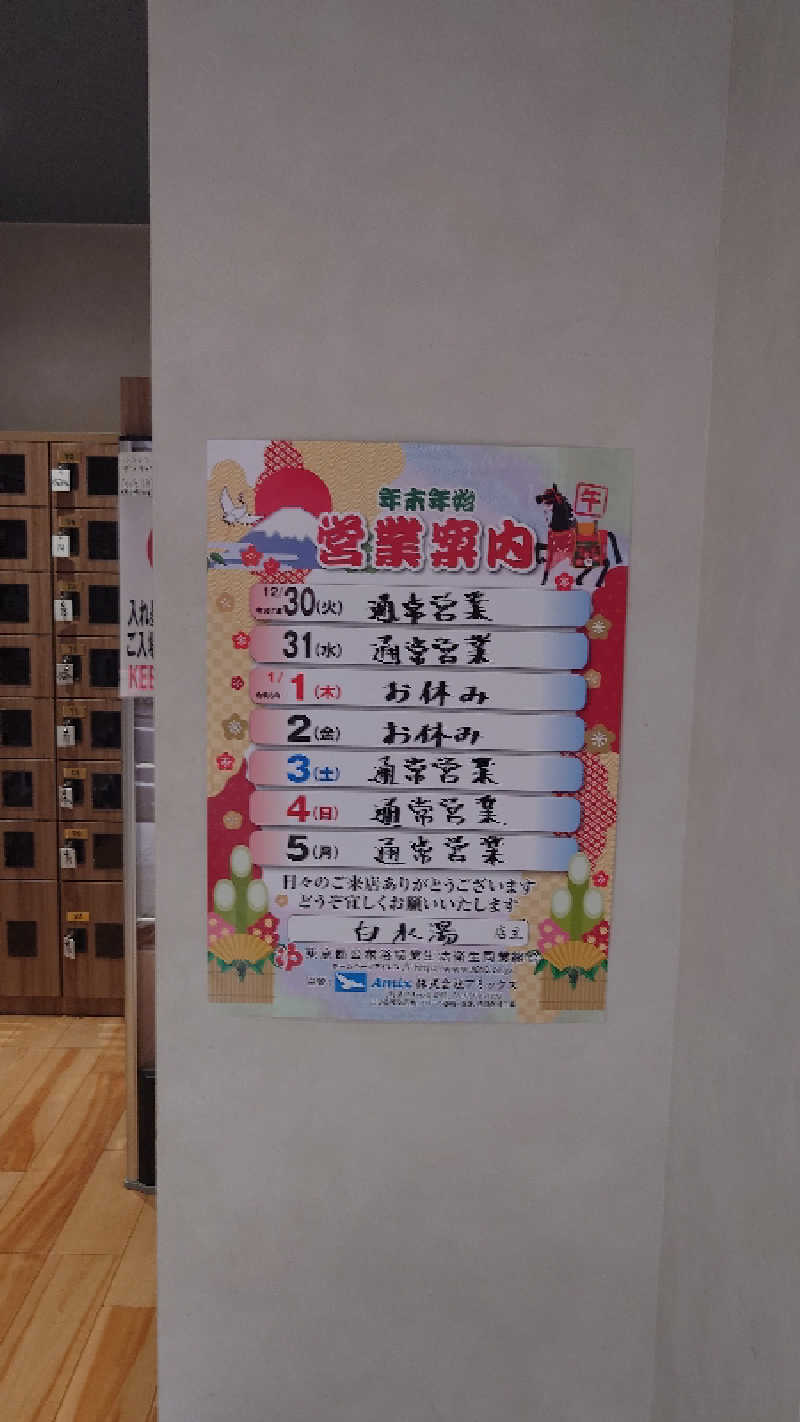 年末年始
営業案内
午
12/30(火) 通常営業
31(水) 通常営業
1/1(木) お休み
2(金) お休み
3(土) 通常営業
4(日) 通常営業
5(月) 通常営業
日々のご来店ありがとうございます
どうぞ宜しくお願いいたします
白水湯 店主
ゆ 東京都公衆浴場業生活衛生同業組合
Amix 株式会社アミックス
入れ
ご入
KEE